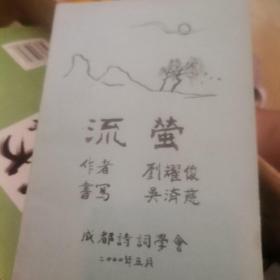 流螢
作者 劉耀俊
書写 吳濟慈
成都詩詞學會
二〇〇〇年五月